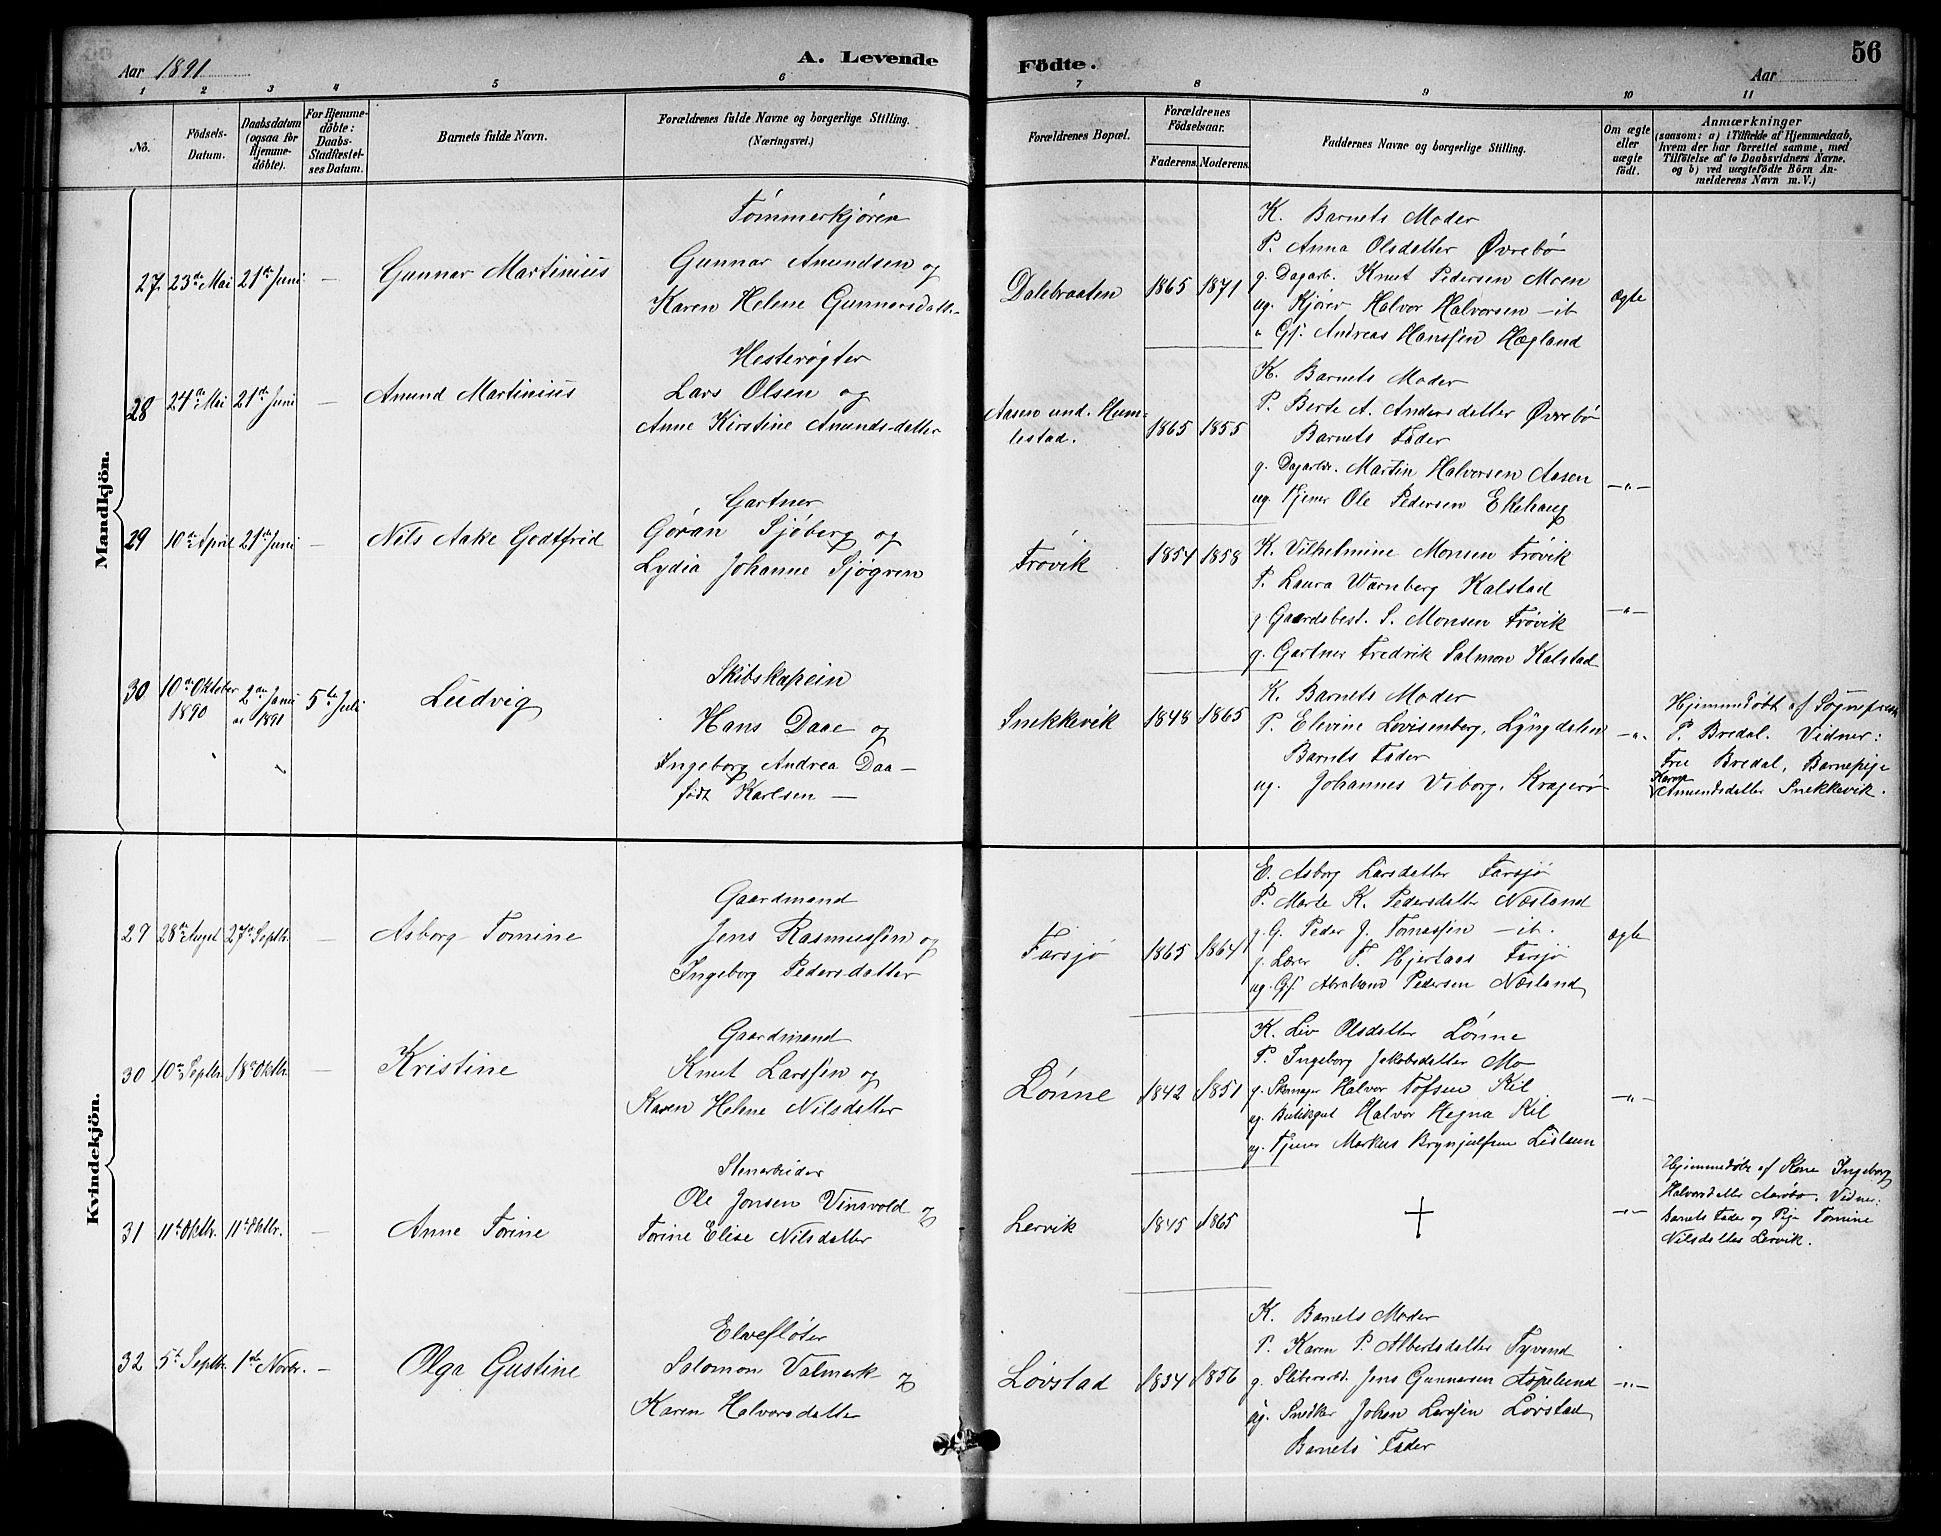 56
Aar 1891
A. Levende Födte.
Aar
1 2 3 4 5 6 7 8 9 10 11
No.
Födsels-Datum.
Daabsdatum (ogsaa for Hjemme-döbte).
For Hjemme-döbte: Daabs-Stadfæstel-ses Datum.
Barnets fulde Navn.
Forældrenes fulde Navne og borgerlige Stilling.
(Næringsvei.)
Forældrenes Bopæl.
Forældrenes Födselsaar.
Faderens. Moderens.
Faddernes Navne og borgerlige Stilling.
Om ægte eller uægte födt.
Anmærkninger
(saasom: a) i Tilfælde af Hjemmedaab,
hvem der har forrettet samme, med
Tilföielse af to Daabsvidners Navne,
og b) ved uægtefödte Börn An-
melderens Navn m. V.)
Mandkjön.
27 23de Mai 21de Juni —
Gunnar Martinius
Tømmerkjører
Gunnar Anundsen og
Karen Helene Gunnarsdatter
Dalebraaten
1865 1871
K. Barnets Moder
P. Anna Olsdatter Øvrebø
g. Dagarb. Knut Pedersen Moen
ug. Kjører Halvor Halvorsen — ib
" Gf. Andreas Hanssen Hægland
ægte
28 24de Mai 21de Juni —
Anund Martinius
Hesterøgter
Lars Olsen og
Anne Kirstine Anundsdatter
Aasen und. Hum-
lestad.
1865 1855
K. Barnets Moder
P. Berte A. Andersdatter Øvrebø
Barnets Fader
g. Dagarbr. Martin Halvorsen Aasen
ug. Tjener Ole Pedersen Ekehaug
—"—
29 10de April 21de Juni —
Nils Aake Godtfrid
Gartner
Göran Sjöberg og
Lydia Johanne Sjøgren
Frøvik
1854 1858
K. Vilhelmine Monsen Frøvik
P. Laura Warnberg Kalstad
g Gaardsbest. S. Monsen Frøvik
g. Gartner Fredrik Salmon Kalstad
—"—
30 10de Oktober 1890 2den Janu ar 1891 5te Juli
Ludvig
Skibskaptein
Hans Daae og
Ingeborg Andrea Daa —
født Karlsen —
Snekkevik
1848 1865
K. Barnets Moder
P. Elevine Lovisenberg, Lyngdalen
Barnets Fader
ug. Johannes Viborg, Kragerø
—"—
Hjemmedøbt af Sognepræst
P. Bredal. Vidner:
Frue Bredal, Barnepige
Karen
Amundsdatter Snekkevik.
Kvindekjön.
29 28de Augst 27de Septbr. —
Asborg Tomine
Gaardmand
Jens Rasmussen og
Ingeborg Pedersdatter
Farsjø
1865 1864
E. Asborg Larsdatter Farsjø
P. Marte K. Pedersdatter Næsland
g. G. Peder J. Tomassen — ib.
g. Lærer T. Hjertaas Farsjø
ug. Gf. Abraham Pedersen Næsland
ægte
30 10de Septbr. 18de Oktbr. —
Kristine
Gaardmand
Knut Larssen og
Karen Helene Nilsdatter
Lønne
1842 1851
K. Liv Olsdatter Lønne
P. Ingeborg Jakobsdatter Mo
g. Skomager Halvor Tofsen Kil
ug. Butikgut Halvor Hegna Kil
ug. Tjener Markus Brynjulfsen
—"—
31 11te Oktbr. 11te Oktbr. —
Anne Torine
Stenarbeider
Ole Jonsen Vinsvold og
Torine Elise Nilsdatter
Lervik
1845 1865
—"—
Hjemmedøbt af Kone Ingeborg
Halvorsdatter Aarøbo. Vidner:
Barnets Fader og Pige Tomine
Nilsdatter Lervik.
32 5te Septbr. 1ste Novbr. —
Olga Gustine
Elvefløter
Salomon Valmerk og
Karen Halvorsdatter
Løvstad
1834 1856
K. Barnets Moder
P. Karen P. Albertsdatter Tyvend
g. Jens Gunnarsen
ug. Snedker Johan Larssen Løvstad
Barnets Fader
—"—